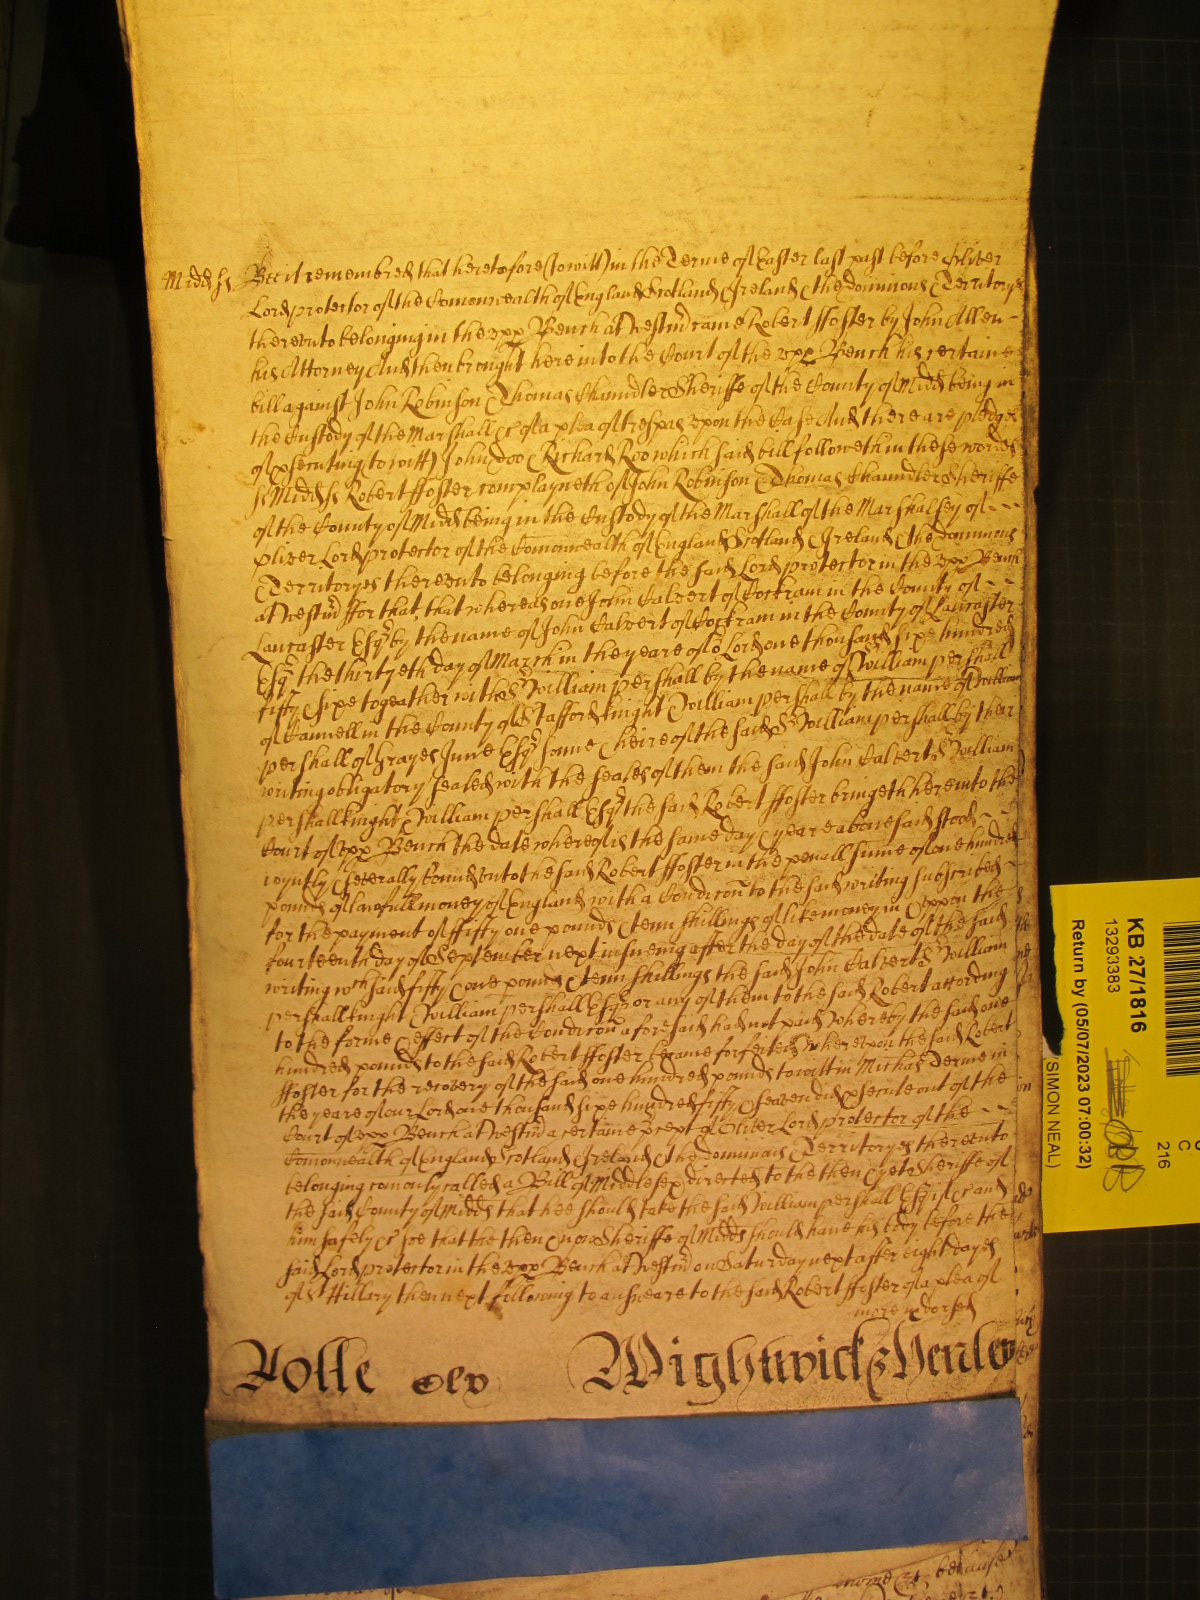 Midds ss Bee it remembred that heretofore (towitt) in the Terme of Easter last past before Oliver
Lord protector of the Comonwealth of England Scotland & Ireland & the dominions & Territoryes
thereunto belonging in the upp Bench at Westmr came Robert ffoster by John Allen -
his Attorney And then brought here into the Court of the upp Bench his certaine
bill against John Robinson & Thomas Chaundler Sheriffe of the County of Midds being in
the Custody of the Marshall &c of a plea of trespas upon the Case And there are pledges
of psecuting towitt John doo & Richard Roo which said bill followeth in these words
ss Midds ss Robert ffoster complayneth of John Robinson & Thomas Chaundler Sheriffe
of the County of Midds being in the Custody of the Marshall of the Marshalsey of - - -
Oliver Lord protector of the Comonwealth of England Scotland & Ireland & the dominions
& Territoryes thereunto belonging before the said Lord protector in the upp Bench
at Westmr ffor that, that whereas one John Calvert of Cockram in the County of - -
Lancaster Esqr by the name of John Calvert of Cockram in the County of Lancaster
Esqr the thirtyeth day of March in the yeare of or Lord one thousand sixe hundred
fifty & sixe togeather with Sr William pershall by the name of Sr William pershall
of Cannell in the County of Stafford knight & William pershall by the name of William
pershall of Grayes Inne Esqr sonne & heire of the said Sr William pershall by their
writing obligatory sealed with the seales of them the said John Calvert Sr William
pershall knight & William pershall Esqr the said Robert ffoster bringeth here into the
Court of upp Bench the date whereof is the same day & yeare abovesaid stood - -
ioyntly & severally bound unto the said Robert ffoster in the penall sume of one hundred
pounds of lawfull money of England with a Condicon to the said writing subscribed
for the payment of ffifty one pounds & tenn shillings of like money in & uppon the
fourteenth day of September next insueing after the day of the date of the said
writing wch said fifty & one pounds & tenn shillings the said John Calvert Sr William
pershall knight & William pershall Esqr or any of them to the said Robert according
to the forme & effect of the Condicon aforesaid had not paid Whereby the said one
hundred pounds to the said Robert ffoster became forfeited whereupon the said Robert
ffoster for the recovery of the said one hundred pounds towitt in Michas Terme in
the yeare of our Lord one thousand sixe hundred fifty & seaven did psecute out of the
Court of upp Bench at Westmr a certaine pcept of Oliver Lord protector of the - -
Comonwealth of England Scotland & Ireland & the dominions & Territoryes thereunto
belonging comonly called a Bill of Middlesex directed to the then & yet Sheriffe of
the said County of Midds that hee should take the said William pershall Esqr if &c and
him safely &c soe that the then & now Sheriffe of Midds should have his body before the
said Lord protector in the upp Bench at Westmr on Saturday next after eight dayes
of St Hillary then next following to answeare to the said Robert ffoster of a plea of
more indorsed
Rolle clv Wightwick & Henley
KB 27/1816
13293383
Return by (05/07/2023 07:00:32)
(SIMON NEAL)
C
216
because